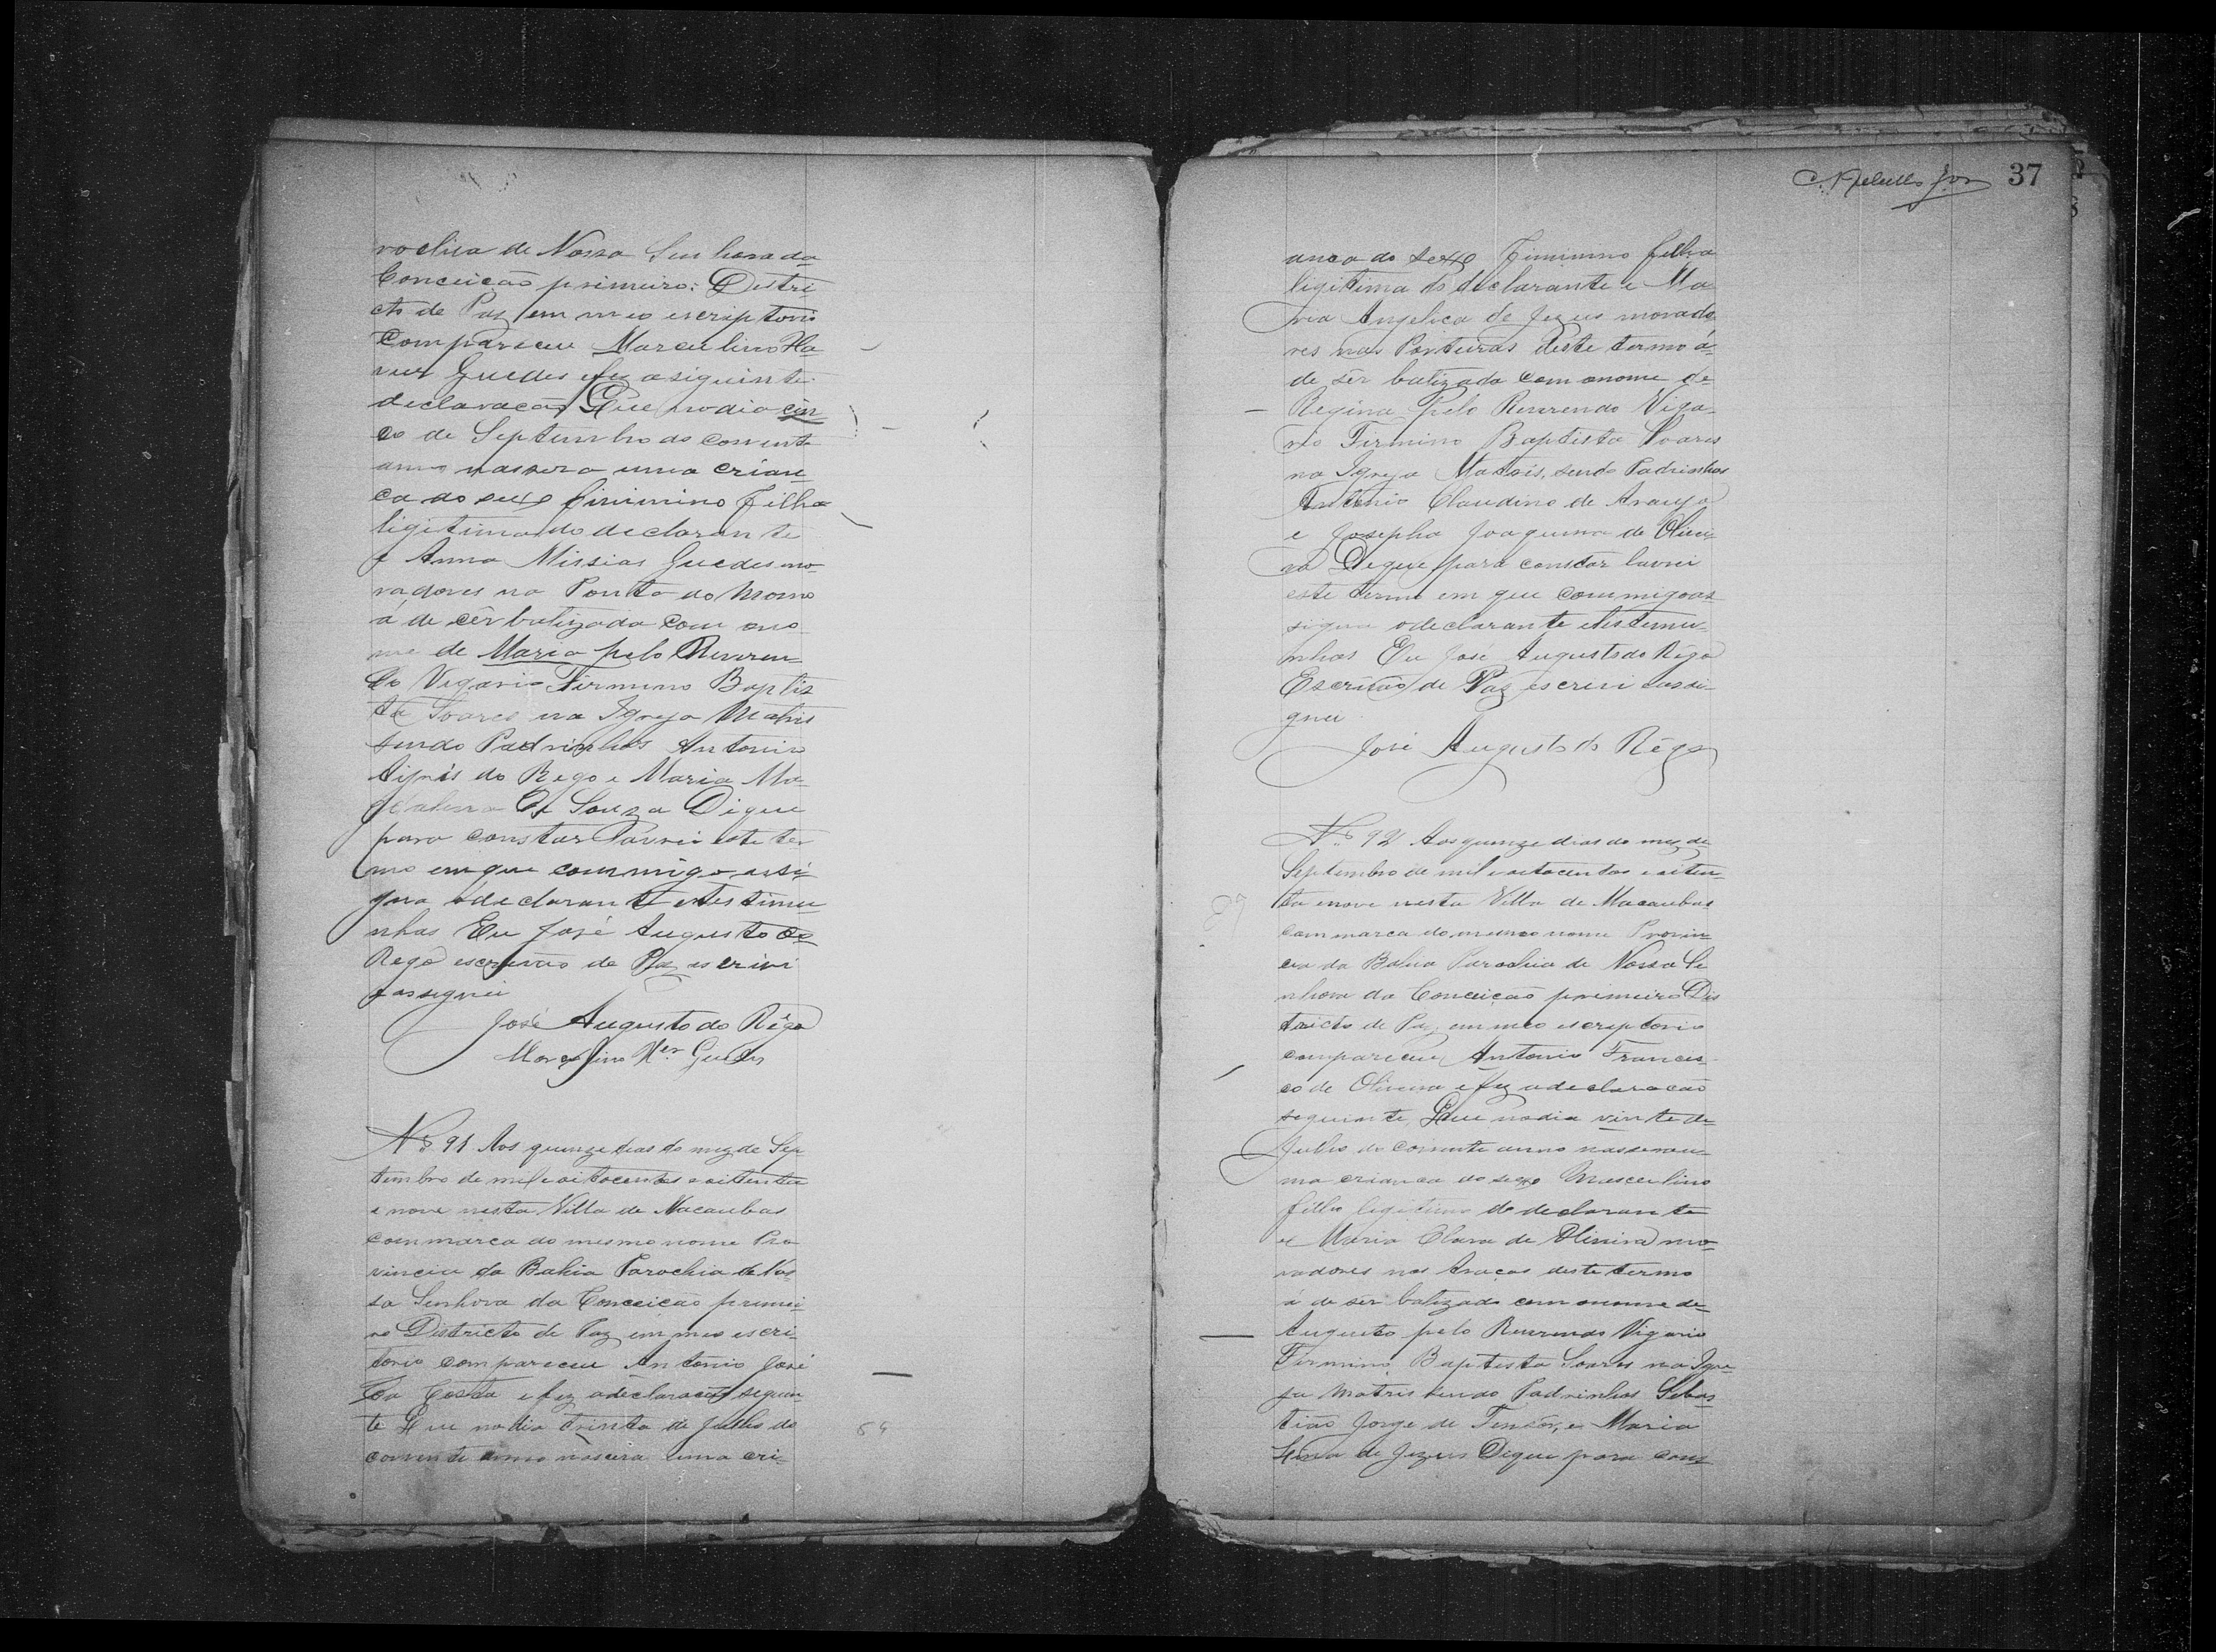 rochia de Nossa Senhora da
Conceição primeiro: Destri-
cto de Paz em meo escriptorio
Compareceu Marculino Xa-
vier Guedes e fez a siguinte
declaracaõ Que no dia cin
co de Septembro do corrente
anno nassera uma crian-
ca do sexo finimino filha
ligitima do declarante
e Anna Missias Guedes mo-
radores na Ponta do Morro
á de cêr batizada com o no
me de Maria pelo Reveren-
do Vegario Firmino Baptis
ta Soares na Igreja Matris
sendo Padrinhos Antonio
do Rego e Maria Ma-
gdalena de Souza Di que
para constar lavrei este ter
mo em que commigo assi-
gna o declarante e testimu-
nhas Eu José Augusto do
Rego escrivão de Paz escrivi
e assegnei
José Augusto do Rêgo
Marculino Xer Guedes
Nº 91 Aos quinze dias do mez de Sep
tembro de mil e oitocentos e oitenta
e nove nesta Villa de Macaubas
commarca do mesmo nome Pro
vincia da Bahia Parochia de Nos-
sa Senhora da Conceicão primei-
ro Districto de Paz em meo escri-
torio compareceu Antonio José
da Costa e fez a declaração seguin-
te Que no dia trinta de Julho do
corrente anno nascera uma cri-
54
37
anca do sexo Finimino filha
ligitima do declarante e Ma
ria Angelica de Jezus morado
res nas Ponturas deste termo á-
de sêr batizada com o nome de
Regina pelo Reverendo Viga-
rio Firmino Baptista Soares
na Igreja Matris, sendo Padrinhos
Antonio Claudino de Araujo
e Josepha Joaquina de Olivei-
ra De que para constar lavrei
este termo em que commigo as-
signa o declarante e testemu-
nhas Eu José Augusto do Rêgo
Escrivão de Paz escrevi e assi-
gnei
José Augusto do Rêgo
Nº 92 Aos quinze dias do mez de
Septembro de mil e oitocentos e oiten-
ta e nove nesta Villa de Macaubas
Commarca do mesmo nome Provin-
cia da Bahia Parochia de Nossa Se
nhora da Conceição primeiro Dis
tricto de Paz em meo escreptorio
compareceu Antonio Francis-
co de Oliveira e fez a declaracão
seguinte Que no dia vinte de
Julho do corrente anno nassera u-
ma crianca do sexo Masculino
filho legitimo do declarante
e Maria Clara de Oliveira mo-
radores nos Aracas deste termo
á de sêr batizado com o nome de
Augusto pelo Reverendo Vigario
Firmino Baptista Soares na Igre
ja Matris sendo Padrinhos Sebas-
tião Jorge de e Maria
Lina de Jezus De que para cons